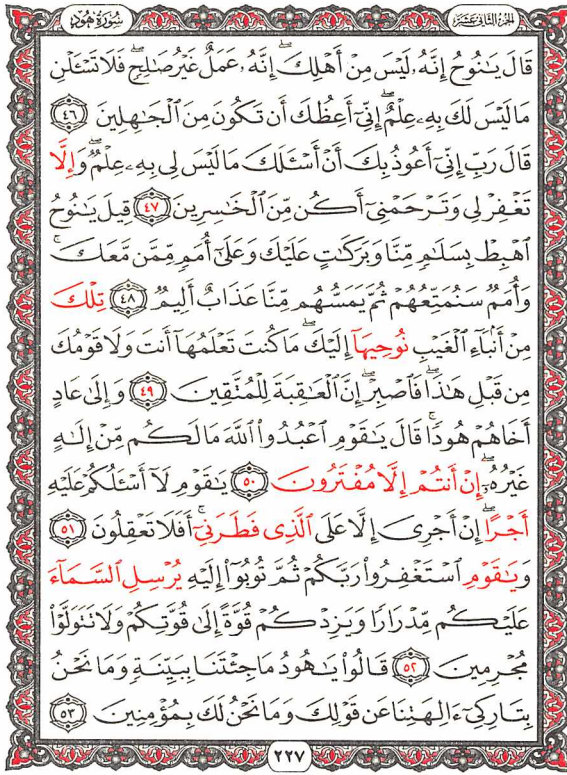 الجزء الثاني عشر
سُورَةُ هُودٍ
قَالَ يَـٰنُوحُ إِنَّهُۥ لَيْسَ مِنْ أَهْلِكَ ۖ إِنَّهُۥ عَمَلٌ غَيْرُ صَـٰلِحٍ ۖ فَلَا تَسْـَٔلْنِ
مَا لَيْسَ لَكَ بِهِۦ عِلْمٌ ۖ إِنِّىٓ أَعِظُكَ أَن تَكُونَ مِنَ ٱلْجَـٰهِلِينَ ٤٦
قَالَ رَبِّ إِنِّىٓ أَعُوذُ بِكَ أَنْ أَسْـَٔلَكَ مَا لَيْسَ لِى بِهِۦ عِلْمٌ ۖ وَإِلَّا
تَغْفِرْ لِى وَتَرْحَمْنِىٓ أَكُن مِّنَ ٱلْخَـٰسِرِينَ ٤٧ قِيلَ يَـٰنُوحُ
ٱهْبِطْ بِسَلَـٰمٍ مِّنَّا وَبَرَكَـٰتٍ عَلَيْكَ وَعَلَىٰٓ أُمَمٍ مِّمَّن مَّعَكَ ۚ
وَأُمَمٌ سَنُمَتِّعُهُمْ ثُمَّ يَمَسُّهُم مِّنَّا عَذَابٌ أَلِيمٌ ٤٨ تِلْكَ
مِنْ أَنۢبَآءِ ٱلْغَيْبِ نُوحِيهَآ إِلَيْكَ ۖ مَا كُنتَ تَعْلَمُهَآ أَنتَ وَلَا قَوْمُكَ
مِن قَبْلِ هَـٰذَا ۖ فَٱصْبِرْ ۖ إِنَّ ٱلْعَـٰقِبَةَ لِلْمُتَّقِينَ ٤٩ وَإِلَىٰ عَادٍ
أَخَاهُمْ هُودًا ۚ قَالَ يَـٰقَوْمِ ٱعْبُدُوا۟ ٱللَّهَ مَا لَكُم مِّنْ إِلَـٰهٍ
غَيْرُهُۥٓ ۖ إِنْ أَنتُمْ إِلَّا مُفْتَرُونَ ٥٠ يَـٰقَوْمِ لَآ أَسْـَٔلُكُمْ عَلَيْهِ
أَجْرًا ۖ إِنْ أَجْرِىَ إِلَّا عَلَى ٱلَّذِى فَطَرَنِىٓ ۚ أَفَلَا تَعْقِلُونَ ٥١
وَيَـٰقَوْمِ ٱسْتَغْفِرُوا۟ رَبَّكُمْ ثُمَّ تُوبُوٓا۟ إِلَيْهِ يُرْسِلِ ٱلسَّمَآءَ
عَلَيْكُم مِّدْرَارًا وَيَزِدْكُمْ قُوَّةً إِلَىٰ قُوَّتِكُمْ وَلَا تَتَوَلَّوْا۟
مُجْرِمِينَ ٥٢ قَالُوا۟ يَـٰهُودُ مَا جِئْتَنَا بِبَيِّنَةٍ وَمَا نَحْنُ
بِتَارِكِىٓ ءَالِهَتِنَا عَن قَوْلِكَ وَمَا نَحْنُ لَكَ بِمُؤْمِنِينَ ٥٣
٢٢٧